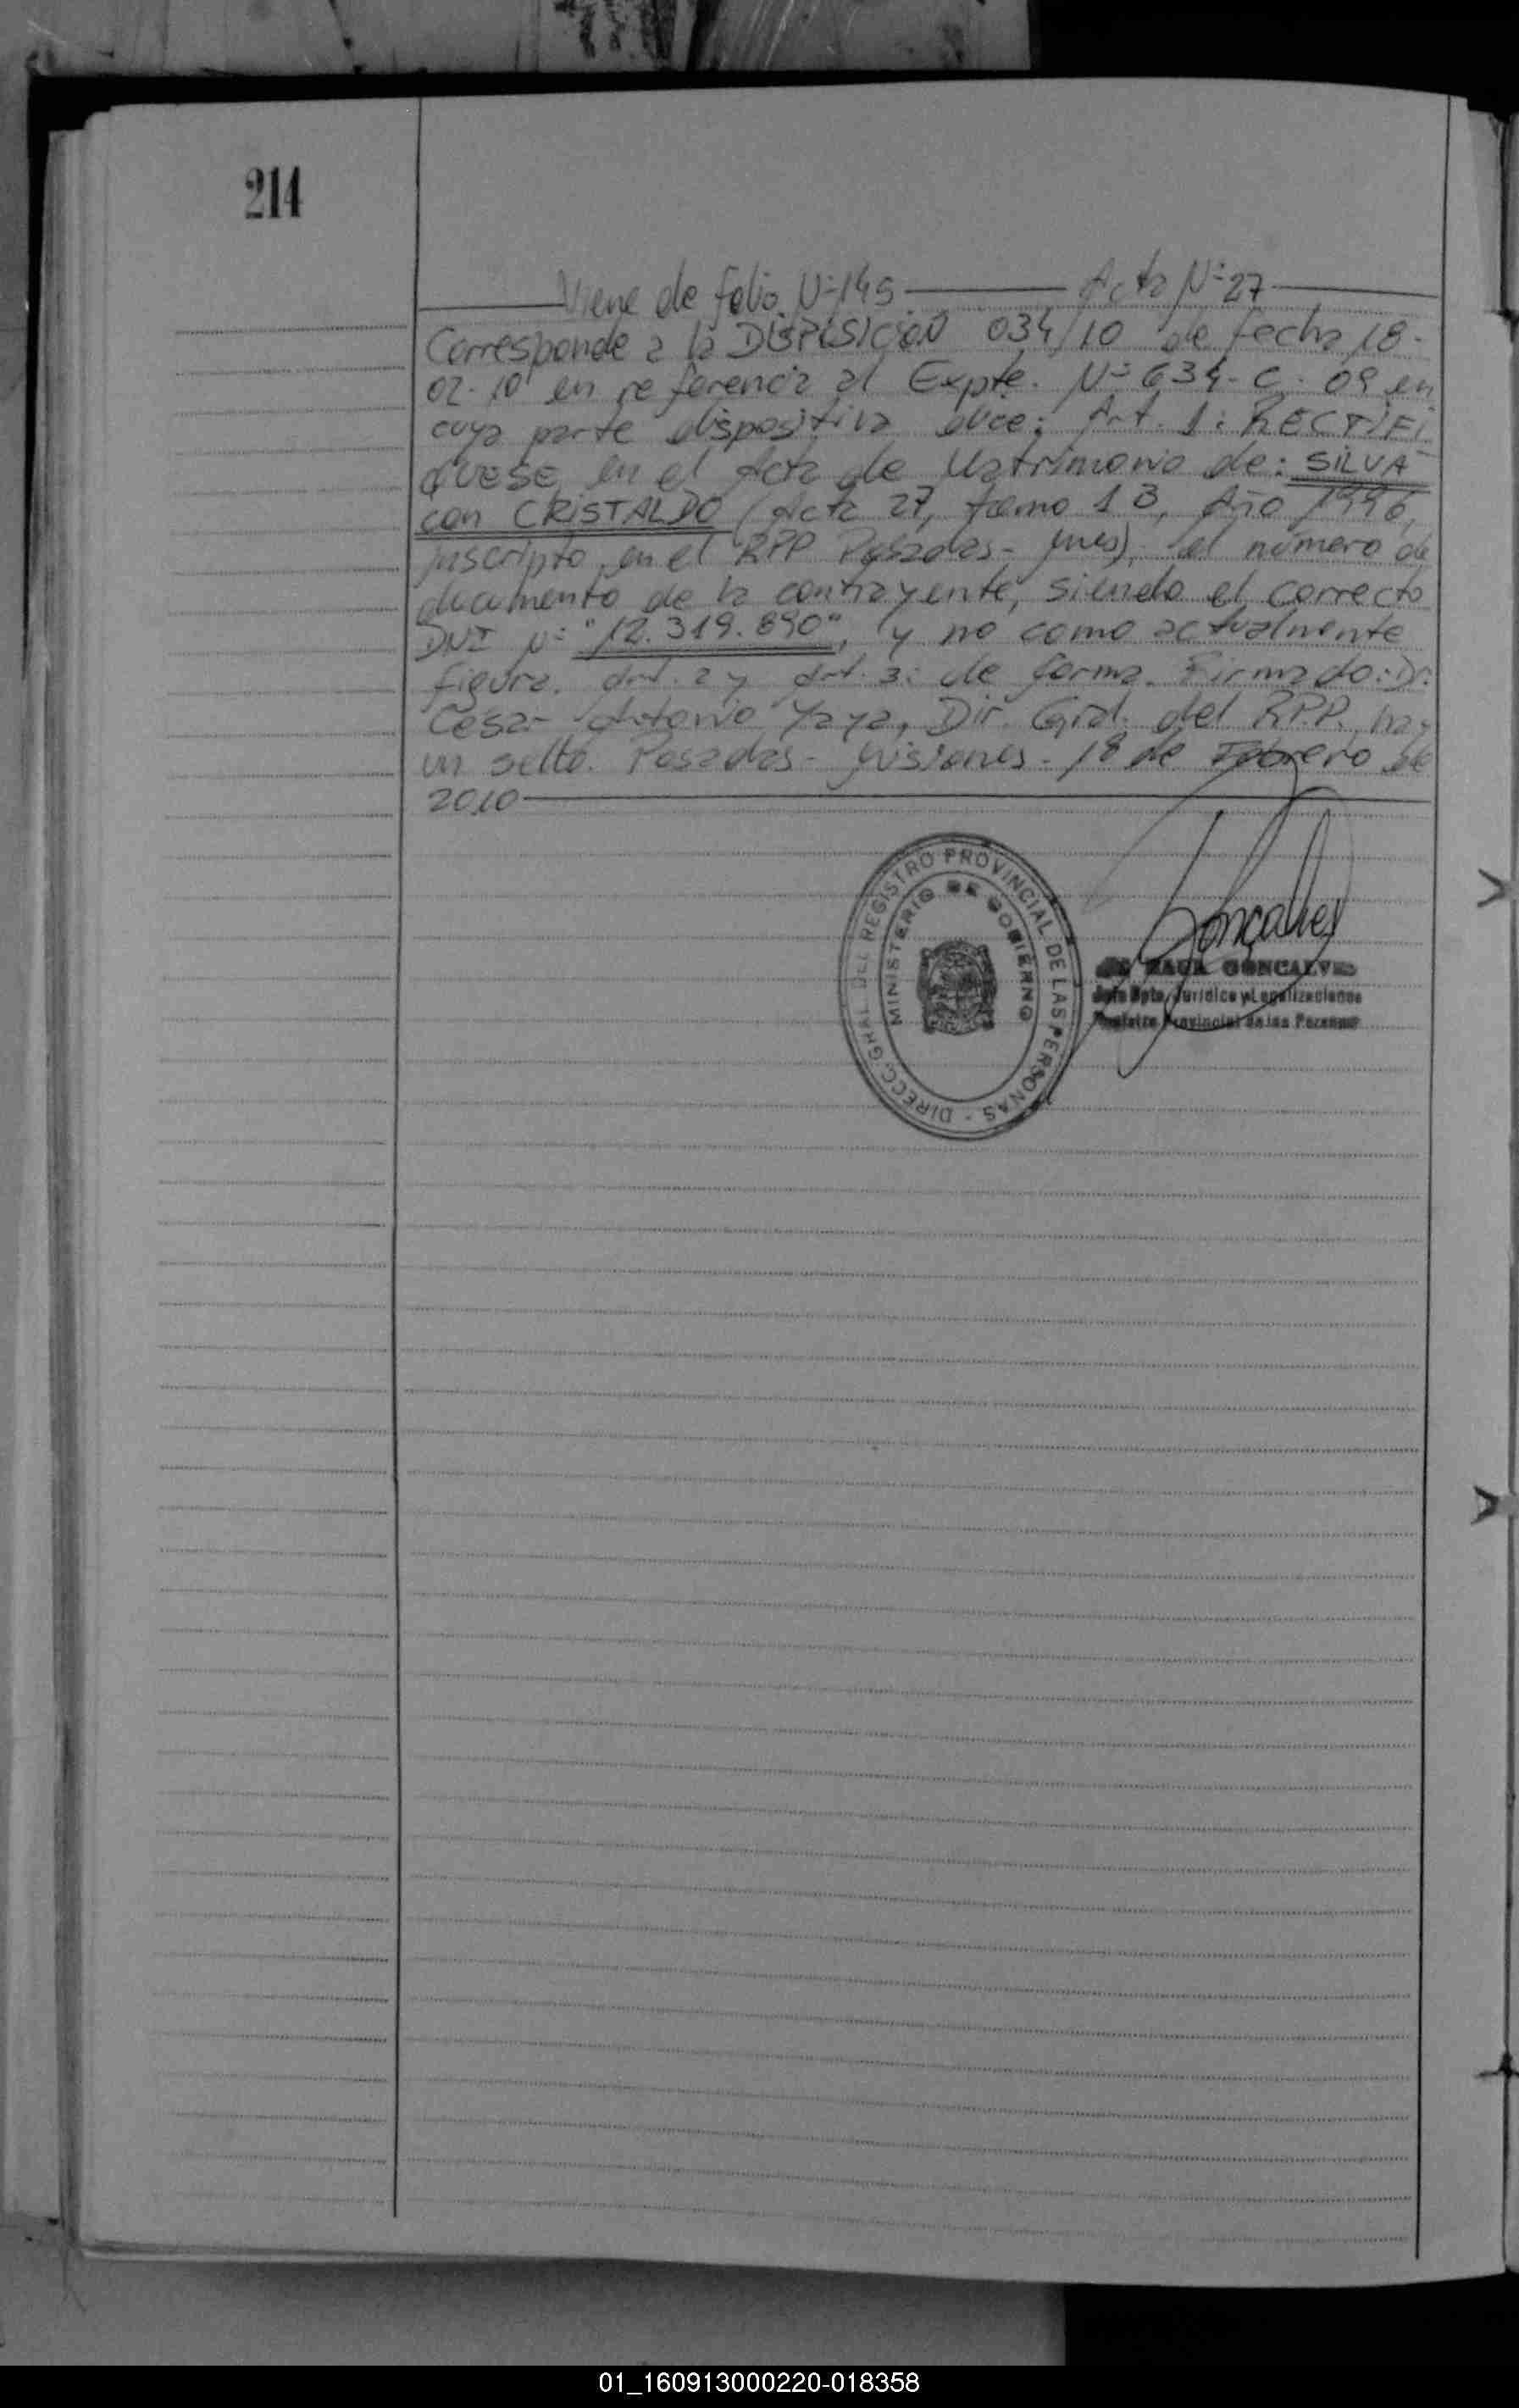 214
Viene de folio N=145 Acta N=27
Corresponde a la DISPOSICION 034/10 de fecha 18-
02-10 en referencia al Expte. N=634-C-09 en
cuya parte dispositiva dice: Art. 1: RECTIFI
QUESE en el Acta de Matrimonio de: SILVA
con CRISTALDO (Acta 27, tomo 1 B, Año 1996,
inscripto en el RPP Posadas- Mnes). el número de
documento de la contrayente, siendo el correcto
DNI N= "12.319.890", y no como actualmente
figura. Art. 2 y Art. 3: de forma. Firmado: Dr.
Cesar Antonio Yaya, Dir. Gral. del R.P.P. hay
un sello. Posadas- Misiones- 18 de Febrero de
2010
DIRECC. GRAL. DEL REGISTRO PROVINCIAL DE LAS PERSONAS -
MINISTERIO DE GOBIERNO
Goncalves
RAUL GONCALVES
Jefe Dpto. Jurídico y Legalizaciones
Registro Provincial de las Personas
01_160913000220-018358